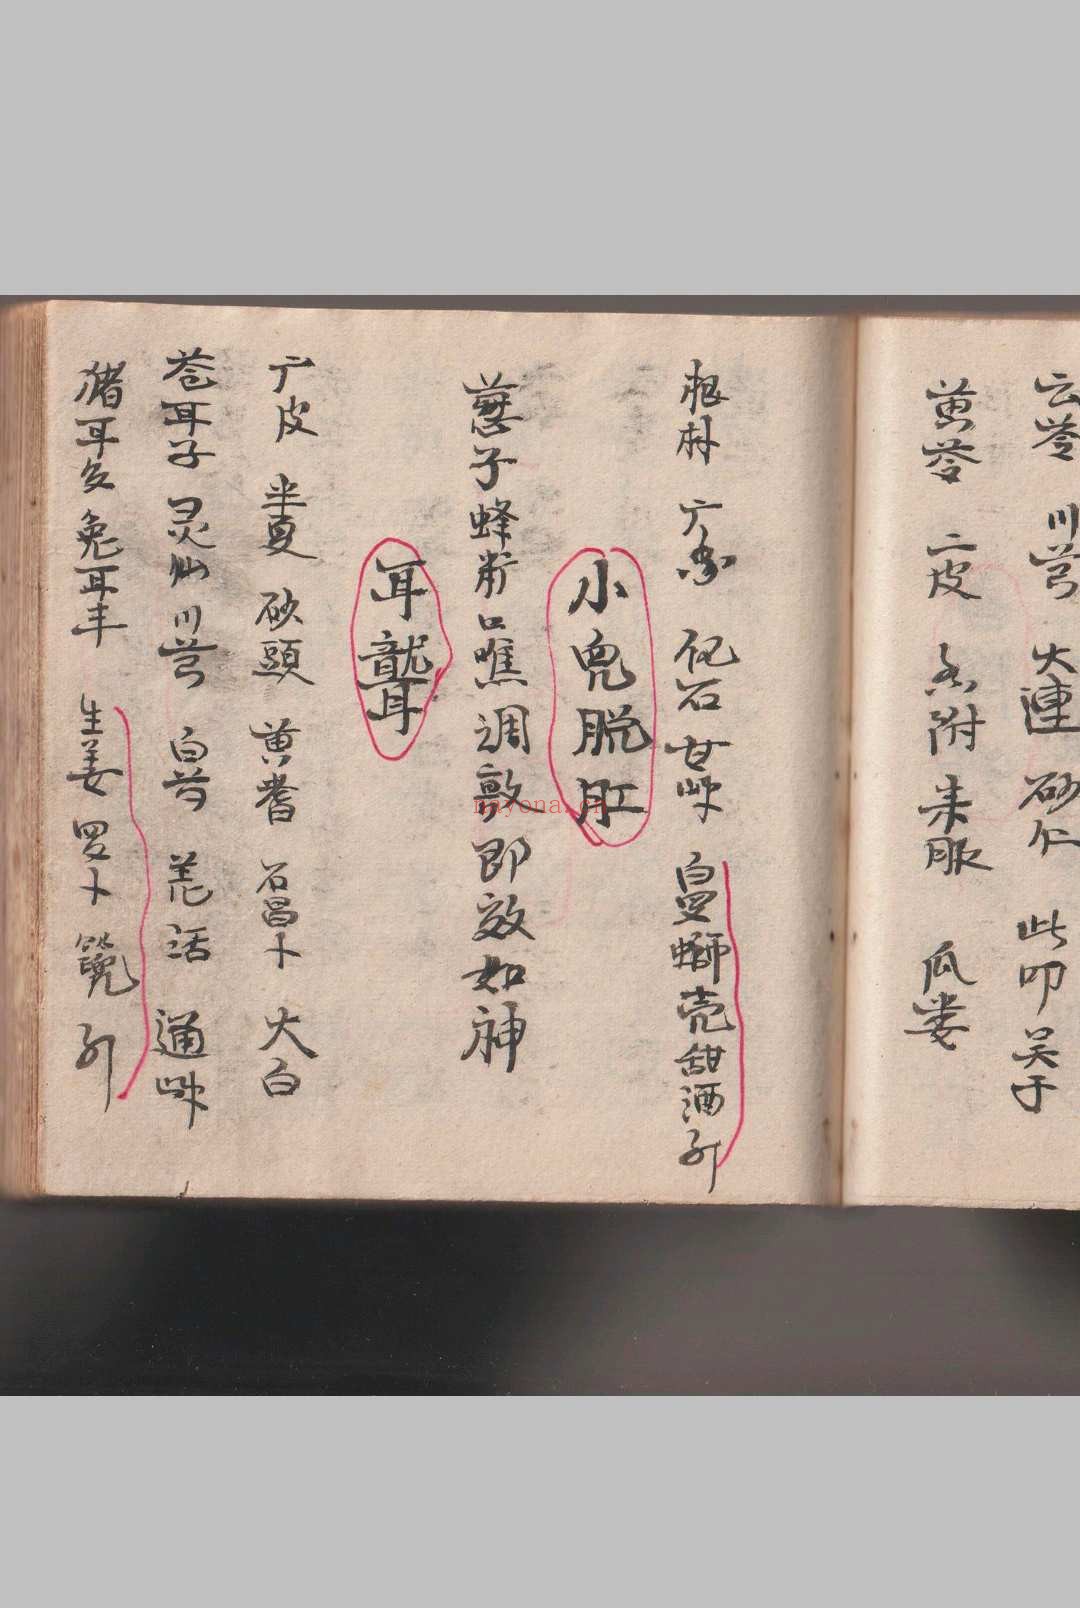 云苓 川芎 大連 砂仁 此叩 吴于
黄苓 二皮 香附 来服 瓜娄
根朴 广香 化石 甘草 白罗螄壳甜酒引
小兜脱肛
蔥子蜂 口噍調敦即效如神
耳聾
广皮 半夏 砂頭 黄耆 石昌卜 大白
苍耳子 灵仙 川芎 白芍 羌活 通草
猪耳 兔耳丰 生姜 罗卜 引
nayona.cn